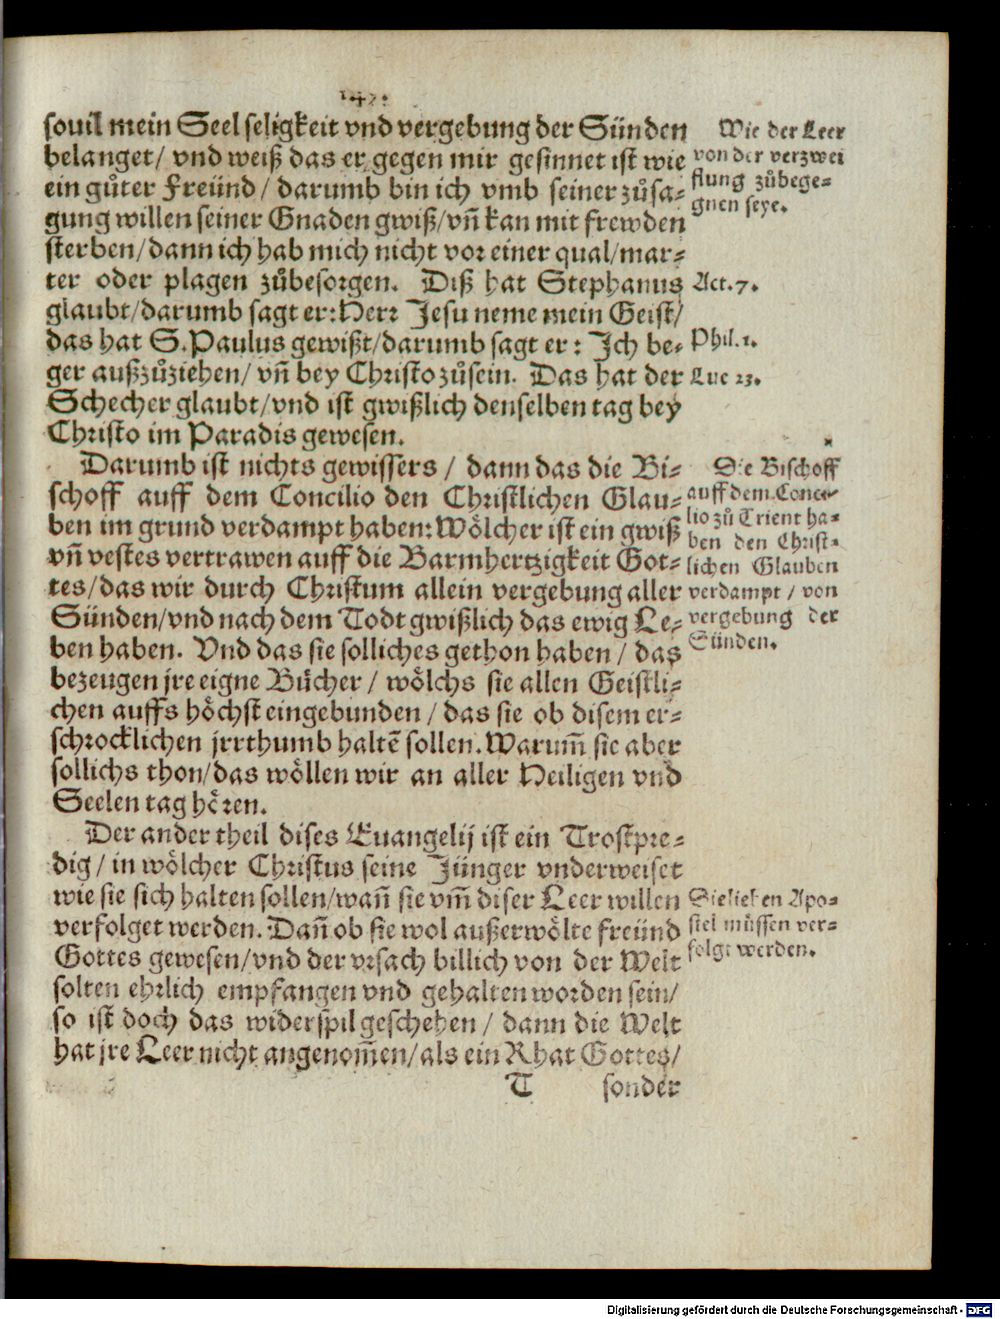 147.
souil mein Seel seligkeit vnd vergebung der Sünden
belanget/ vnd weiß das er gegen mir gesinnet ist wie
ein gůter Freünd/ darumb bin ich vmb seiner zůsa-
gung willen seiner Gnaden gwiß/vñ kan mit frewden
sterben/dann ich hab mich nicht vor einer qual/mar-
ter oder plagen zůbesorgen. Diß hat Stephanus
glaubt/darumb sagt er: Herr Jesu neme mein Geist/
das hat S. Paulus gewißt/darumb sagt er: Ich be-
ger außzůziehen/ vñ bey Christo zůsein. Das hat der
Schecher glaubt/vnd ist gwißlich denselben tag bey
Christo im Paradis gewesen.
Wie der Leer
von der verzwei
flung zůbege-
gnen seye.
Act. 7.
Phil. 1.
Luc 23.
Darumb ist nichts gewissers / dann das die Bi-
schoff auff dem Concilio den Christlichen Glau-
ben im grund verdampt haben: Wölcher ist ein gwiß
vñ vestes vertrawen auff die Barmhertzigkeit Got-
tes/das wir durch Christum allein vergebung aller
Sünden/vnd nach dem Todt gwißlich das ewig Le-
ben haben. Vnd das sie solliches gethon haben / das
bezeugen jre eigne Bücher / wölchs sie allen Geistli-
chen auffs höchst eingebunden / das sie ob disem er-
schrocklichen jrrthumb haltē sollen. Warum̃ sie aber
sollichs thon/das wöllen wir an aller Heiligen vnd
Seelen tag hören.
Die Bischoff
auff dem Conci-
lio zů Trient ha-
ben den Christ-
lichen Glauben
verdampt / von
vergebung der
Sünden.
Der ander theil dises Euangelij ist ein Trostpre-
dig / in wölcher Christus seine Jünger vnderweiset
wie sie sich halten sollen/wañ sie vm̃ diser Leer willen
verfolget werden. Dañ ob sie wol außerwölte freünd
Gottes gewesen/vnd der vrsach billich von der Welt
solten ehrlich empfangen vnd gehalten worden sein/
so ist doch das widerspil geschehen / dann die Welt
hat jre Leer nicht angenom̃en/als ein Rhat Gottes/
Die lieben Apo-
stel müssen ver-
folgt werden.
T sonder
Digitalisierung gefördert durch die Deutsche Forschungsgemeinschaft - DFG